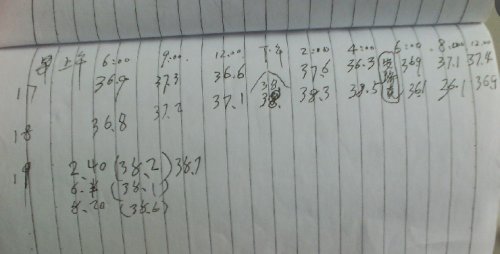 上午 6:00 9:00 12:00 下午 2:00 4:00 6:00 8:00 12:00
17 36.9 37.3 36.6 37.6 36.3 36.9 37.1 37.4
18 36.8 37.2 37.1 38.3 38.5 36.1 36.1 36.9
19 2.40 (38.2) 38.7
(38.1)
8.20 (38.6)